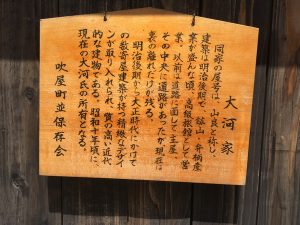 大河家
同家の屋号は、山良と称し、
建築は明治後期で、鉱山・弁柄産
業が盛んな頃、高級旅館として営
業、以前は道路に面して主屋、
その中央に道路があったが現在は
裏の離れだけが残る。
明治後期から大正時代にかけて
の数寄屋建築が持つ精緻なデザイ
ンが取り入れられ、質の高い近代
的な建物である。昭和十年頃に、
現在の大河氏の所有となる。
吹屋町並保存会